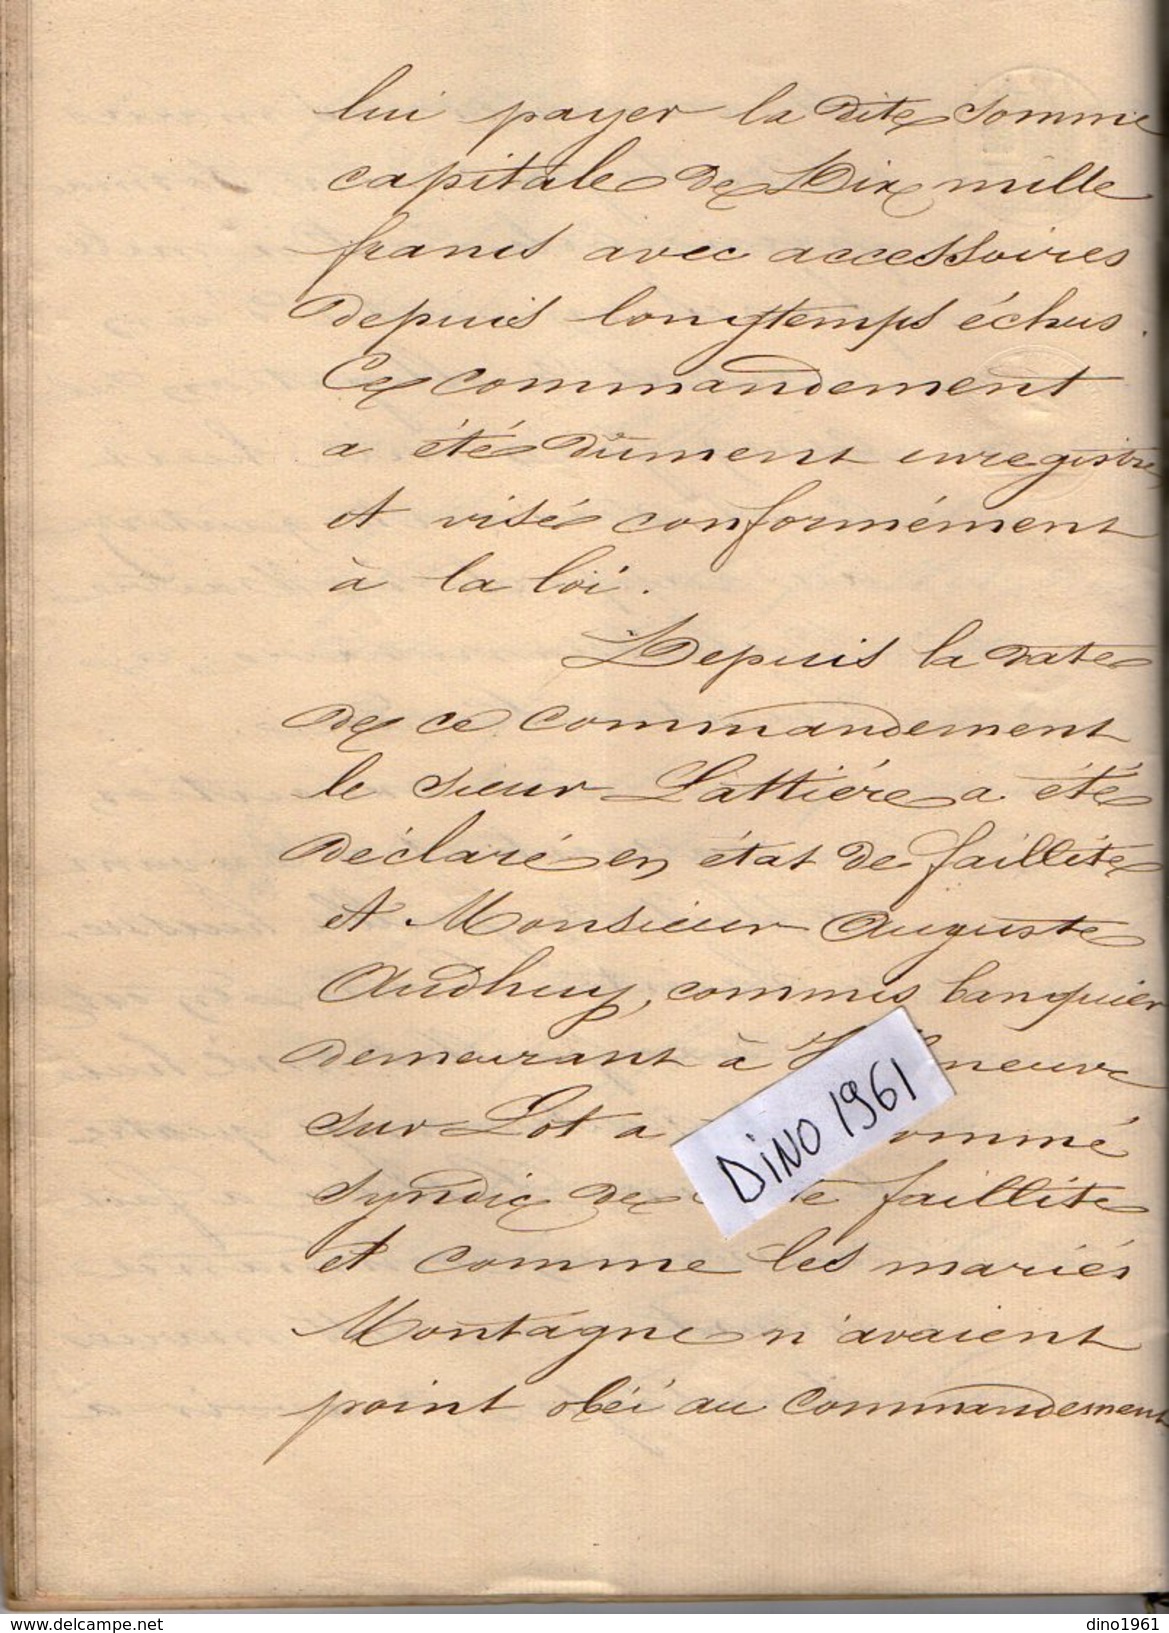 lui payer la dite somme
capitale de Dix mille
francs avec accessoires
depuis longtemps échus.
Ce commandement
a été dûment enregistré
et visé conformément
à la loi.
Depuis la date
de ce commandement
le sieur Lattière a été
déclaré en état de faillite
et Monsieur Auguste
Audhuy, commis banquier
demeurant à neuve
sur Lot a ommé
syndic de faillite
DiNO 1961
et comme les mariés
Montagne n'avaient
point obéi au commandement
www.delcampe.net
dino1961